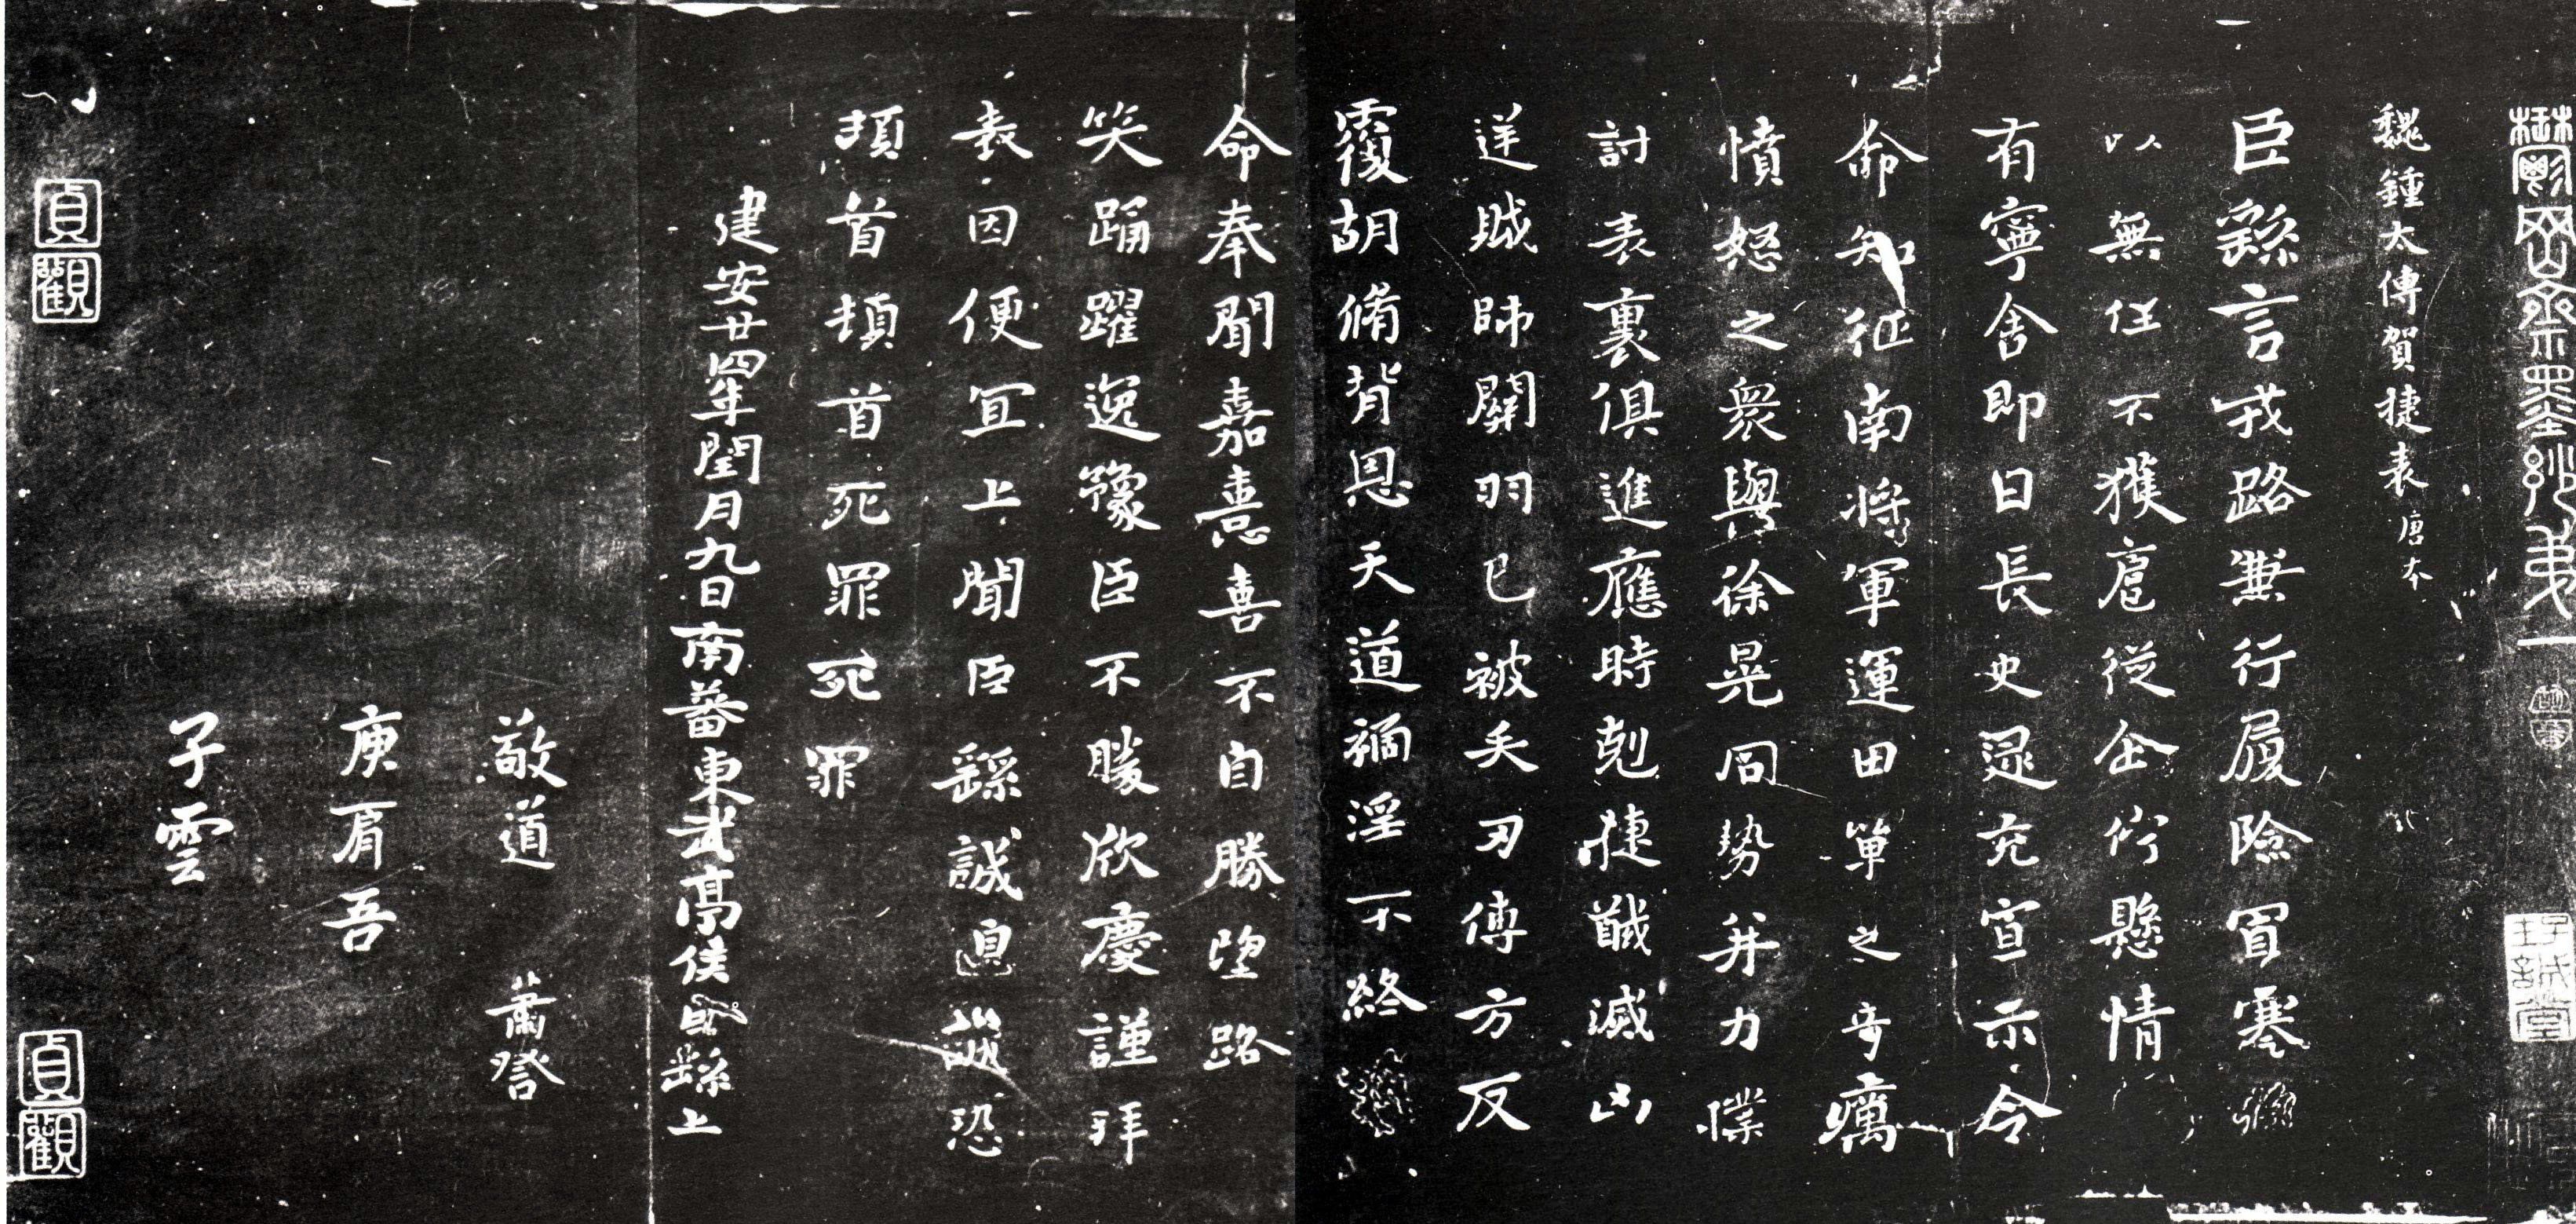 鬱岡齋墨妙第一
魏鍾太傅賀捷表唐本
臣繇言戎路兼行履險冒寒
以無任不獲扈從企佇懸情
有寧舍即日長史逯充宣示令
命知征南將軍運田單之奇厲
憤怒之眾與徐晃同勢并力撲
討表裏俱進應時剋捷馘滅凶
逆賊帥關羽已被矢刃傅方反
覆胡脩背恩天道禍淫不終
命奉聞嘉憙喜不自勝望路
笑踊躍逸豫臣不勝欣慶謹拜
表因便宜上聞臣繇誠皇誠恐
頓首頓首死罪死罪
建安廿四年閏月九日南蕃東武亭侯臣繇上
敬道 蕭詧
庾肩吾
子雲
貞觀
貞觀